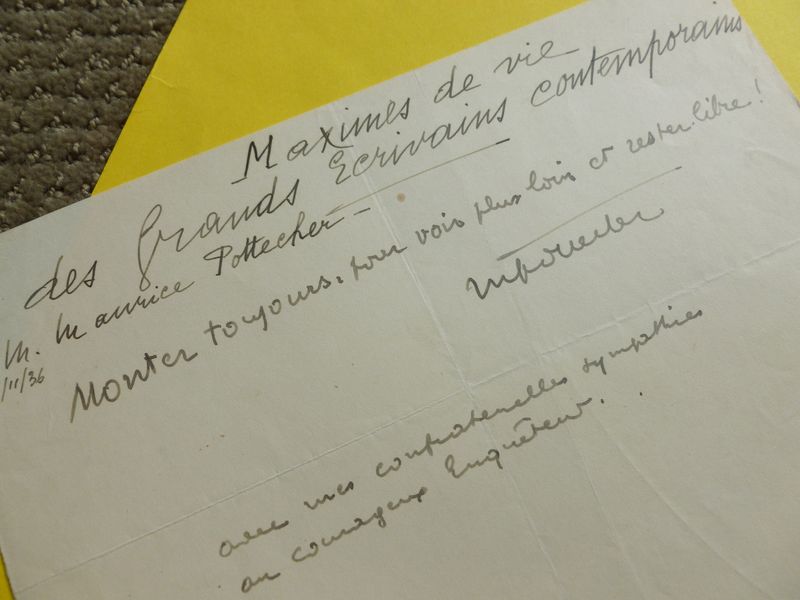 Maximes de vie
des Grands Ecrivains contemporains
M. Maurice Pottecher -
/11/36
Monter toujours, pour voir plus loin et rester libre!
MPottecher
avec mes confraternelles sympathies
au courageux Enquêteur.